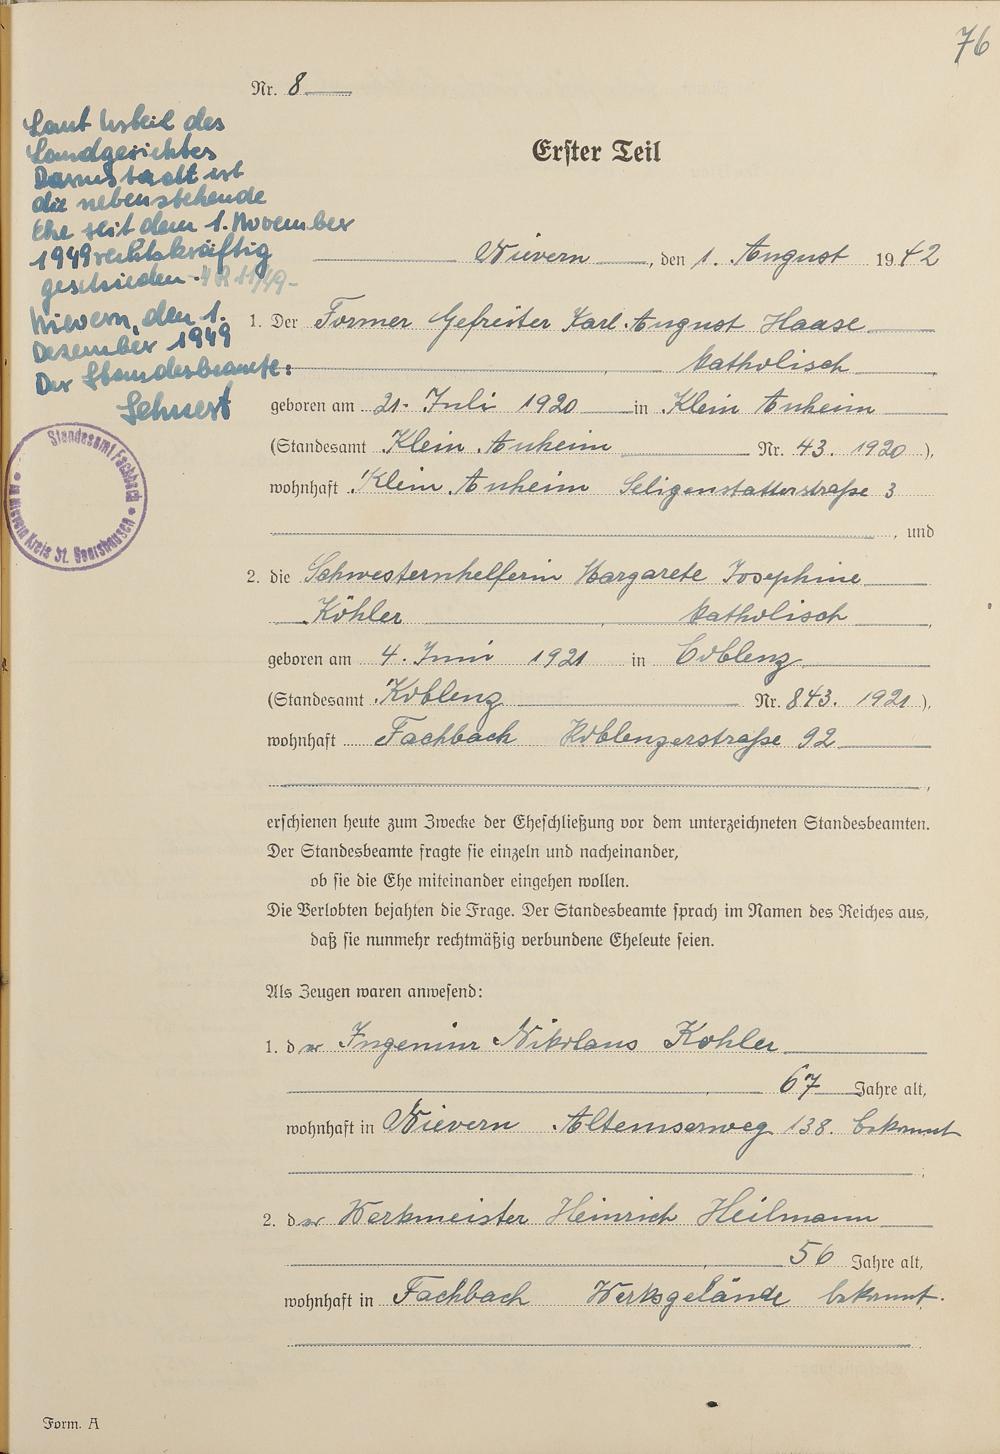 76
Nr. 8
Laut Urteil des
Landgerichtes
Darmstadt ist
die nebenstehende
Ehe seit dem 1. November
1949 rechtskräftig
geschieden
Nievern, den 1.
Dezember 1949
Der Standesbeamte:
Standesamt Fachbach
in Nievern Kreis St. Goarshausen
Erster Teil
Nievern, den 1. August 1942
1. Der Former Gefreiter Karl August Haase
katholisch
geboren am 21. Juli 1920 in Klein Auheim
(Standesamt Klein Auheim Nr. 43. 1920),
wohnhaft Klein Auheim Seligenstatterstraße 3
, und
2. die Schwesternhelferin Margarete Josephine
Köhler, katholisch,
geboren am 4. Juni 1921 in Coblenz
(Standesamt Koblenz Nr. 843. 1921),
wohnhaft Fachbach Koblenzerstraße 92
,
erschienen heute zum Zwecke der Eheschließung vor dem unterzeichneten Standesbeamten.
Der Standesbeamte fragte sie einzeln und nacheinander,
ob sie die Ehe miteinander eingehen wollen.
Die Verlobten bejahten die Frage. Der Standesbeamte sprach im Namen des Reiches aus,
daß sie nunmehr rechtmäßig verbundene Eheleute seien.
Als Zeugen waren anwesend:
1. der Ingenieur Nikolaus Kohler
67 Jahre alt,
wohnhaft in Nievern Altemserweg 138. bekannt
;
2. der Werkmeister Heinrich Heilmann
56 Jahre alt,
wohnhaft in Fachbach Werksgelände bekannt.
Form. A